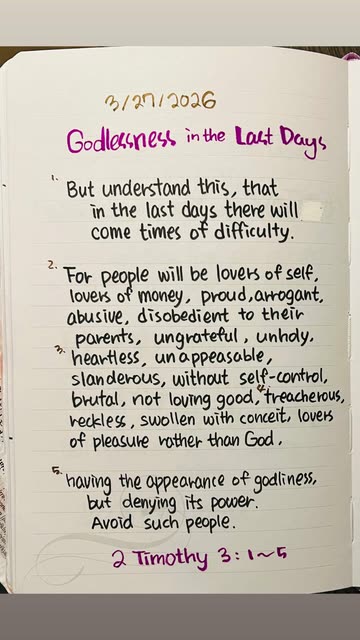 3/27/2026
Godlessness in the Last Days
1. But understand this, that
in the last days there will
come times of difficulty.
2. For people will be lovers of self,
lovers of money, proud, arrogant,
abusive, disobedient to their
parents, ungrateful, unholy,
3. heartless, unappeasable,
slanderous, without self-control,
brutal, not loving good, 4. treacherous,
reckless, swollen with conceit, lovers
of pleasure rather than God,
5. having the appearance of godliness,
but denying its power.
Avoid such people.
2 Timothy 3:1~5